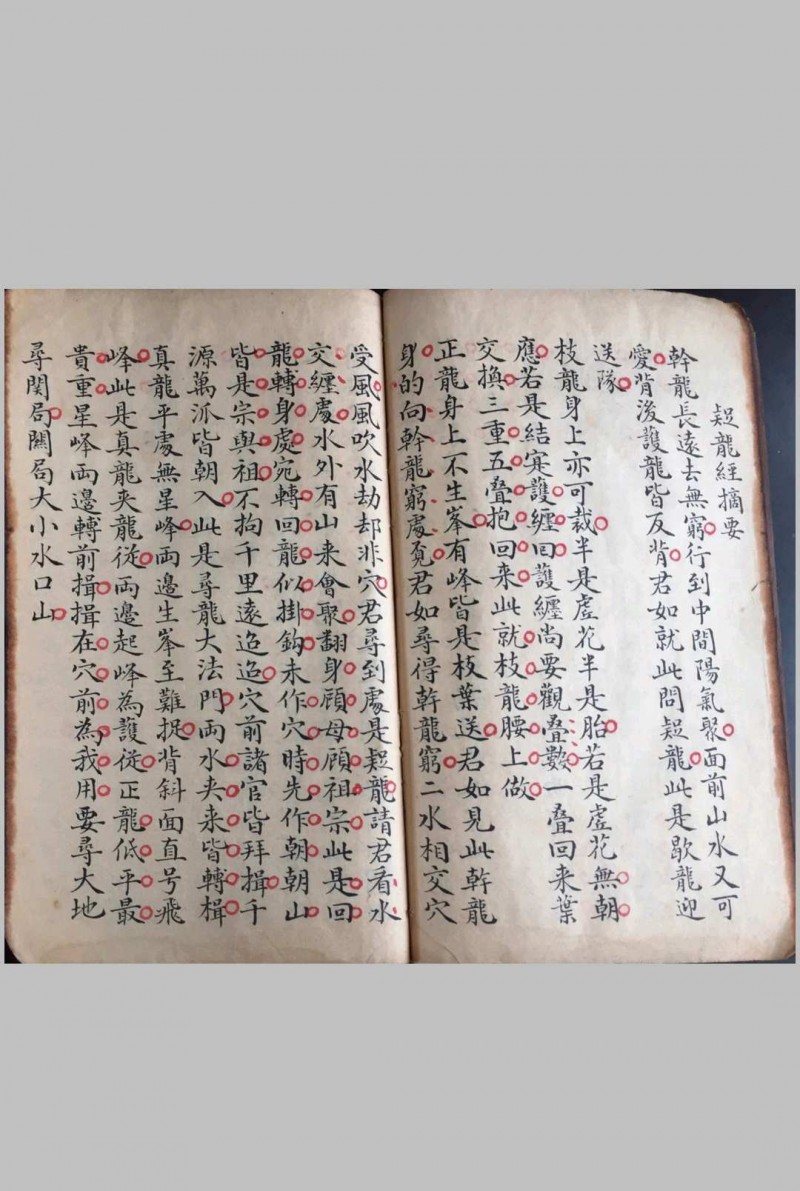 疑龍經摘要
幹龍長遠去無窮行到中間陽氣聚面前山水又可
愛背後護龍皆反背君如就此問疑龍此是歇龍迎
送隊
枝龍身上亦可裁半是虛花半是胎若是虛花無朝
應若是結寔護纏回護纏尚要觀叠數一叠回来葉
交換三重五叠抱回来此就枝龍腰上做
正龍身上不生峯有峰皆是枝葉送君如見此幹龍
身的向幹龍窮處覔君如尋得幹龍窮二水相交穴
受風風吹水劫却非穴君尋到處是疑龍請君看水
交纏處水外有山来會聚翻身顧母顧祖宗此是回
龍轉身處宛轉回龍似掛鈎未作穴時先作朝朝山
皆是宗與祖不拘千里遠迢迢穴前諸官皆拜揖千
源萬派皆朝入此是尋龍大法門両水夹来皆轉揖
真龍平處無星峰両邊生峯至難捉背斜面直号飛
峰此是真龍夾龍従両邊起峰為護従正龍低平最
貴重星峰両邊轉前揖揖在穴前為我用要尋大地
尋関局関局大小水口山